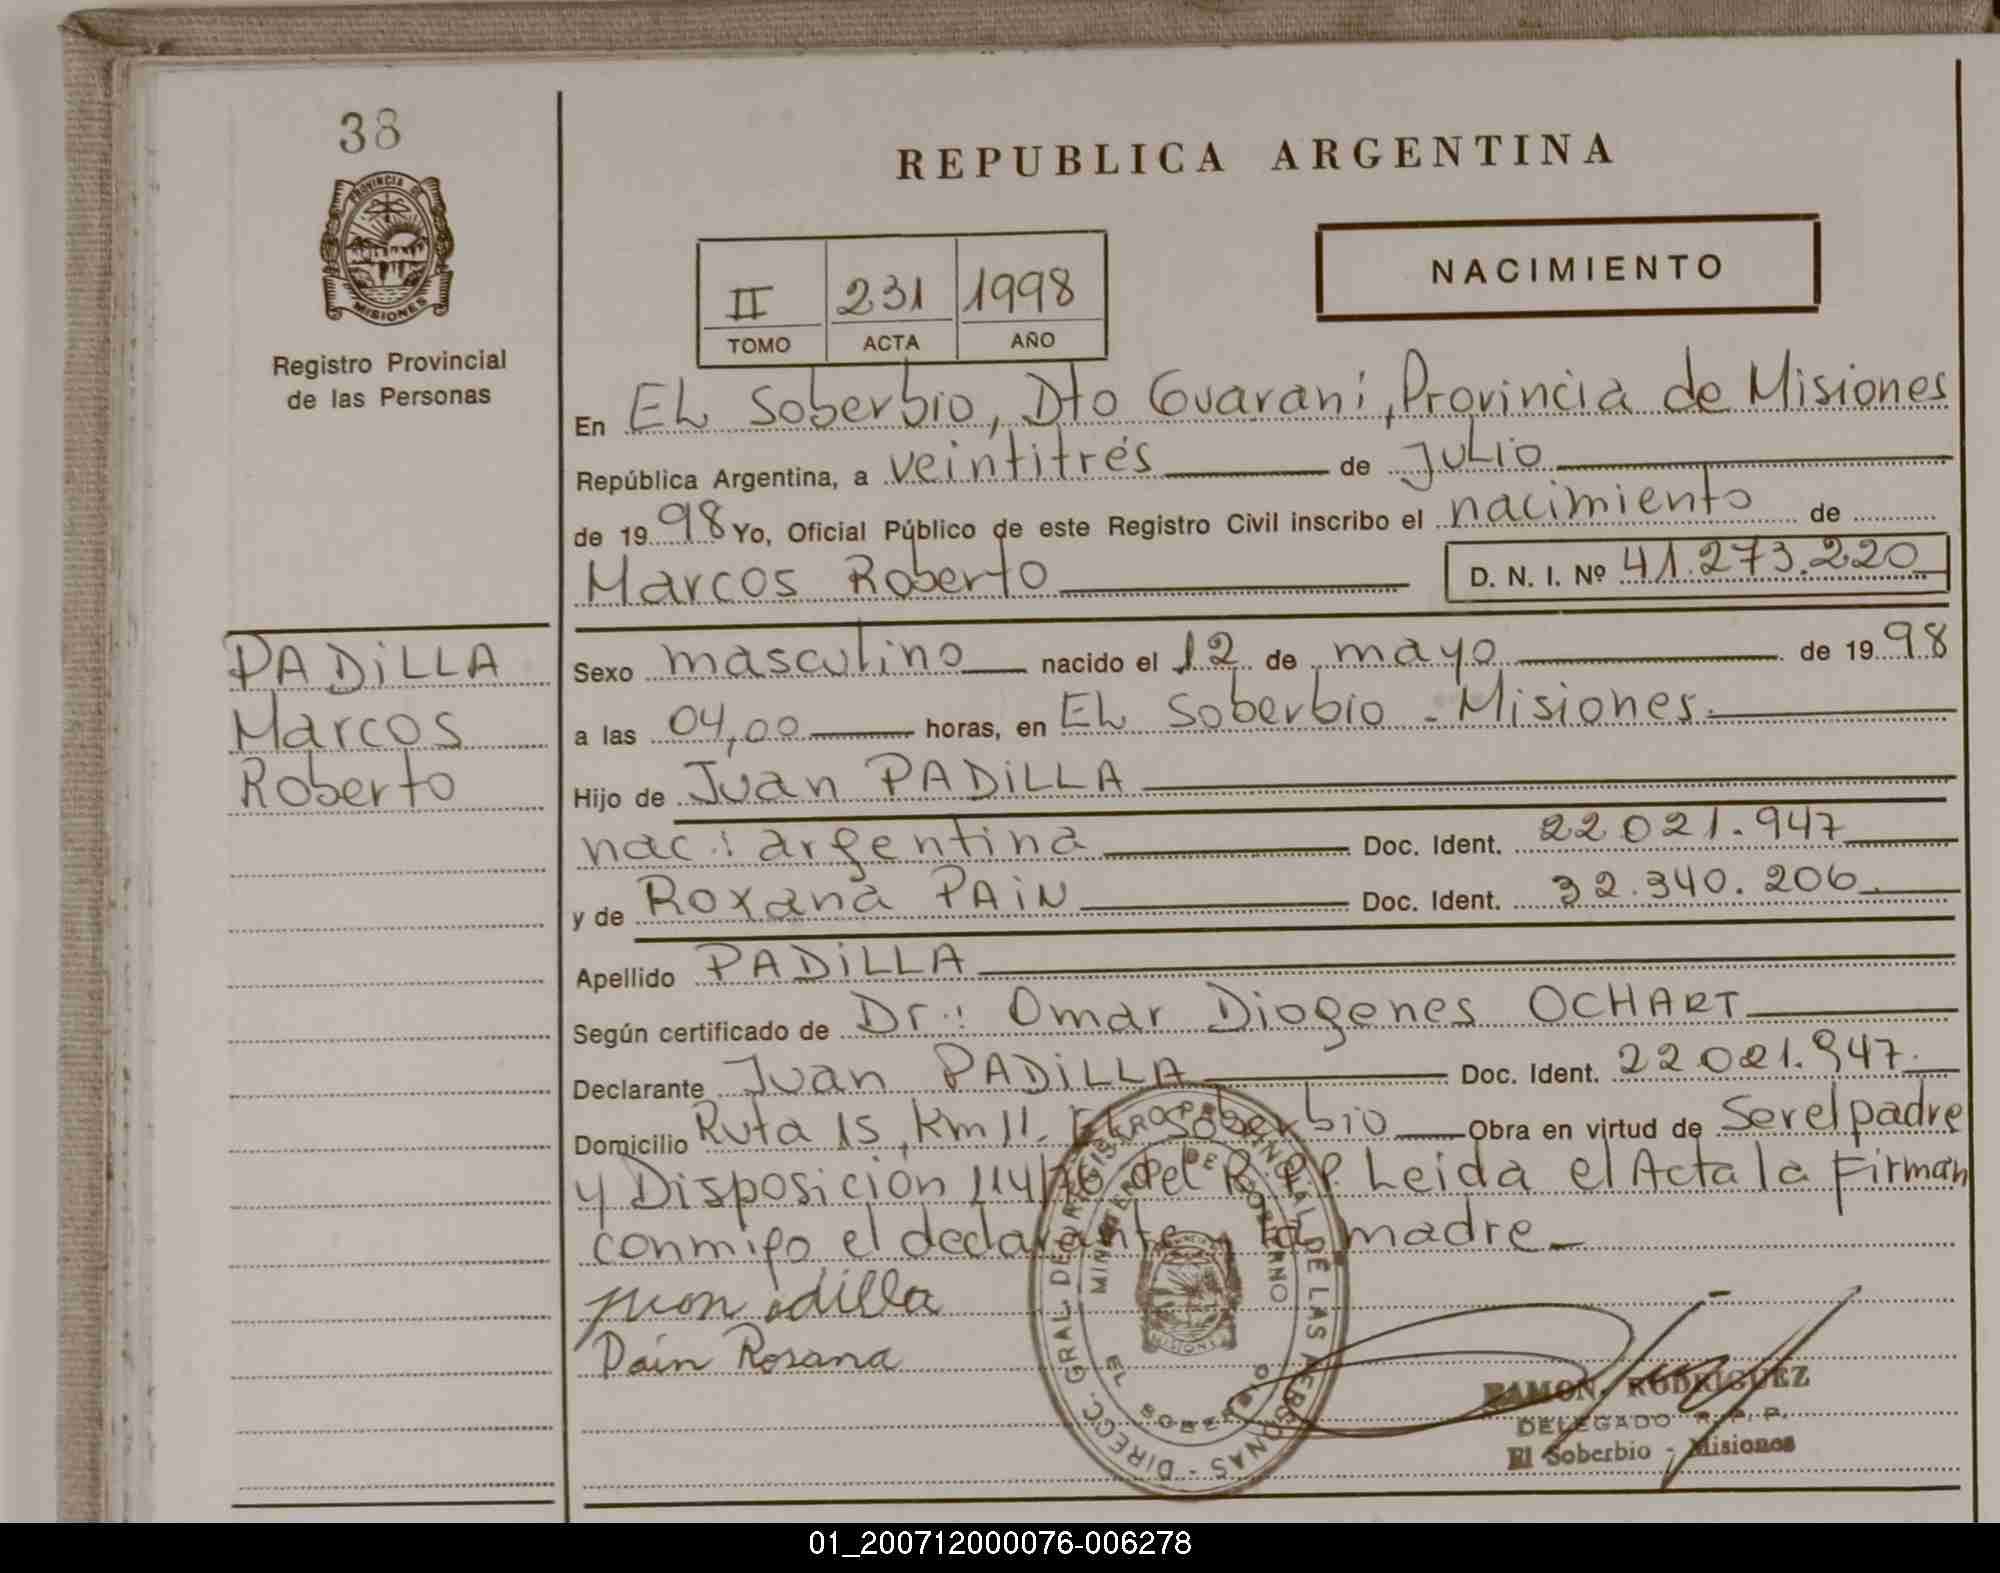 38
PROVINCIA DE
MISIONES
Registro Provincial
de las Personas
PADiLLA
Marcos
Roberto
REPUBLICA ARGENTINA
NACIMIENTO
II 231 1998
TOMO ACTA AÑO
En EL Soberbio, Dto Guaraní, Provincia de Misiones
República Argentina, a veintitrés de Julio
de 1998 Yo, Oficial Público de este Registro Civil inscribo el nacimiento de
Marcos Roberto D. N. I. Nº 41.273.220
Sexo masculino nacido el 12 de mayo de 1998
a las 04,00 horas, en EL Soberbio - Misiones.
Hijo de Juan PADiLLA
nac: argentina Doc. Ident. 22021.947
y de Roxana PAiN Doc. Ident. 32.340.206.
Apellido PADiLLA
Según certificado de Dr.: Omar Diogenes OCHART
Declarante Juan PADiLLA Doc. Ident. 22021.947.
Domicilio Ruta 15, Km 11. EL Soberbio Obra en virtud de Ser el padre
y Disposición 114/76 del R.P.P. Leida el Acta la Firman
conmigo el declarante y la madre.
juan adilla
Pain Rosana
DIRECC. GRAL. DE REGISTRO PROVINCIAL DE LAS PERSONAS
MINISTERIO DE GOBIERNO
MISIONES
EL SOBERBIO
RAMON RODRIGUEZ
DELEGADO R. P. P.
El Soberbio - Misiones
01_200712000076-006278